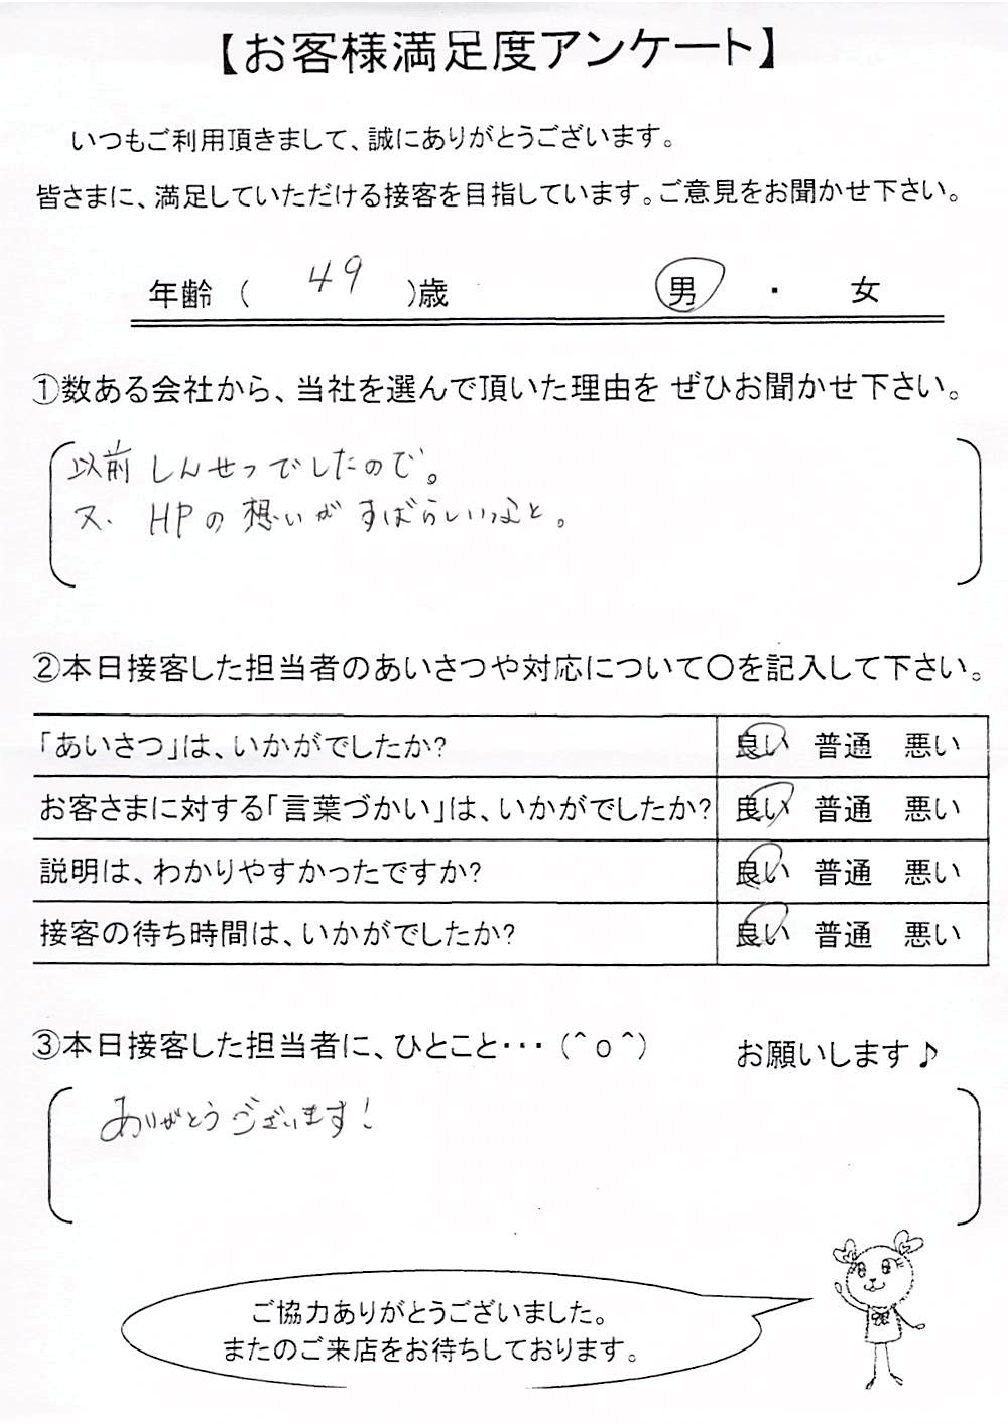 【お客様満足度アンケート】
いつもご利用頂きまして、誠にありがとうございます。
皆さまに、満足していただける接客を目指しています。ご意見をお聞かせ下さい。
年齢 ( 49 )歳 男 ・ 女
①数ある会社から、当社を選んで頂いた理由を ぜひお聞かせ下さい。
以前 しんせつでしたので。
又、HPの想いがすばらしい
②本日接客した担当者のあいさつや対応について〇を記入して下さい。
「あいさつ」は、いかがでしたか? 良い 普通 悪い
お客さまに対する「言葉づかい」は、いかがでしたか? 良い 普通 悪い
説明は、わかりやすかったですか? 良い 普通 悪い
接客の待ち時間は、いかがでしたか? 良い 普通 悪い
③本日接客した担当者に、ひとこと・・・ (^o^) お願いします♪
ありがとうございます!
ご協力ありがとうございました。
またのご来店をお待ちしております。